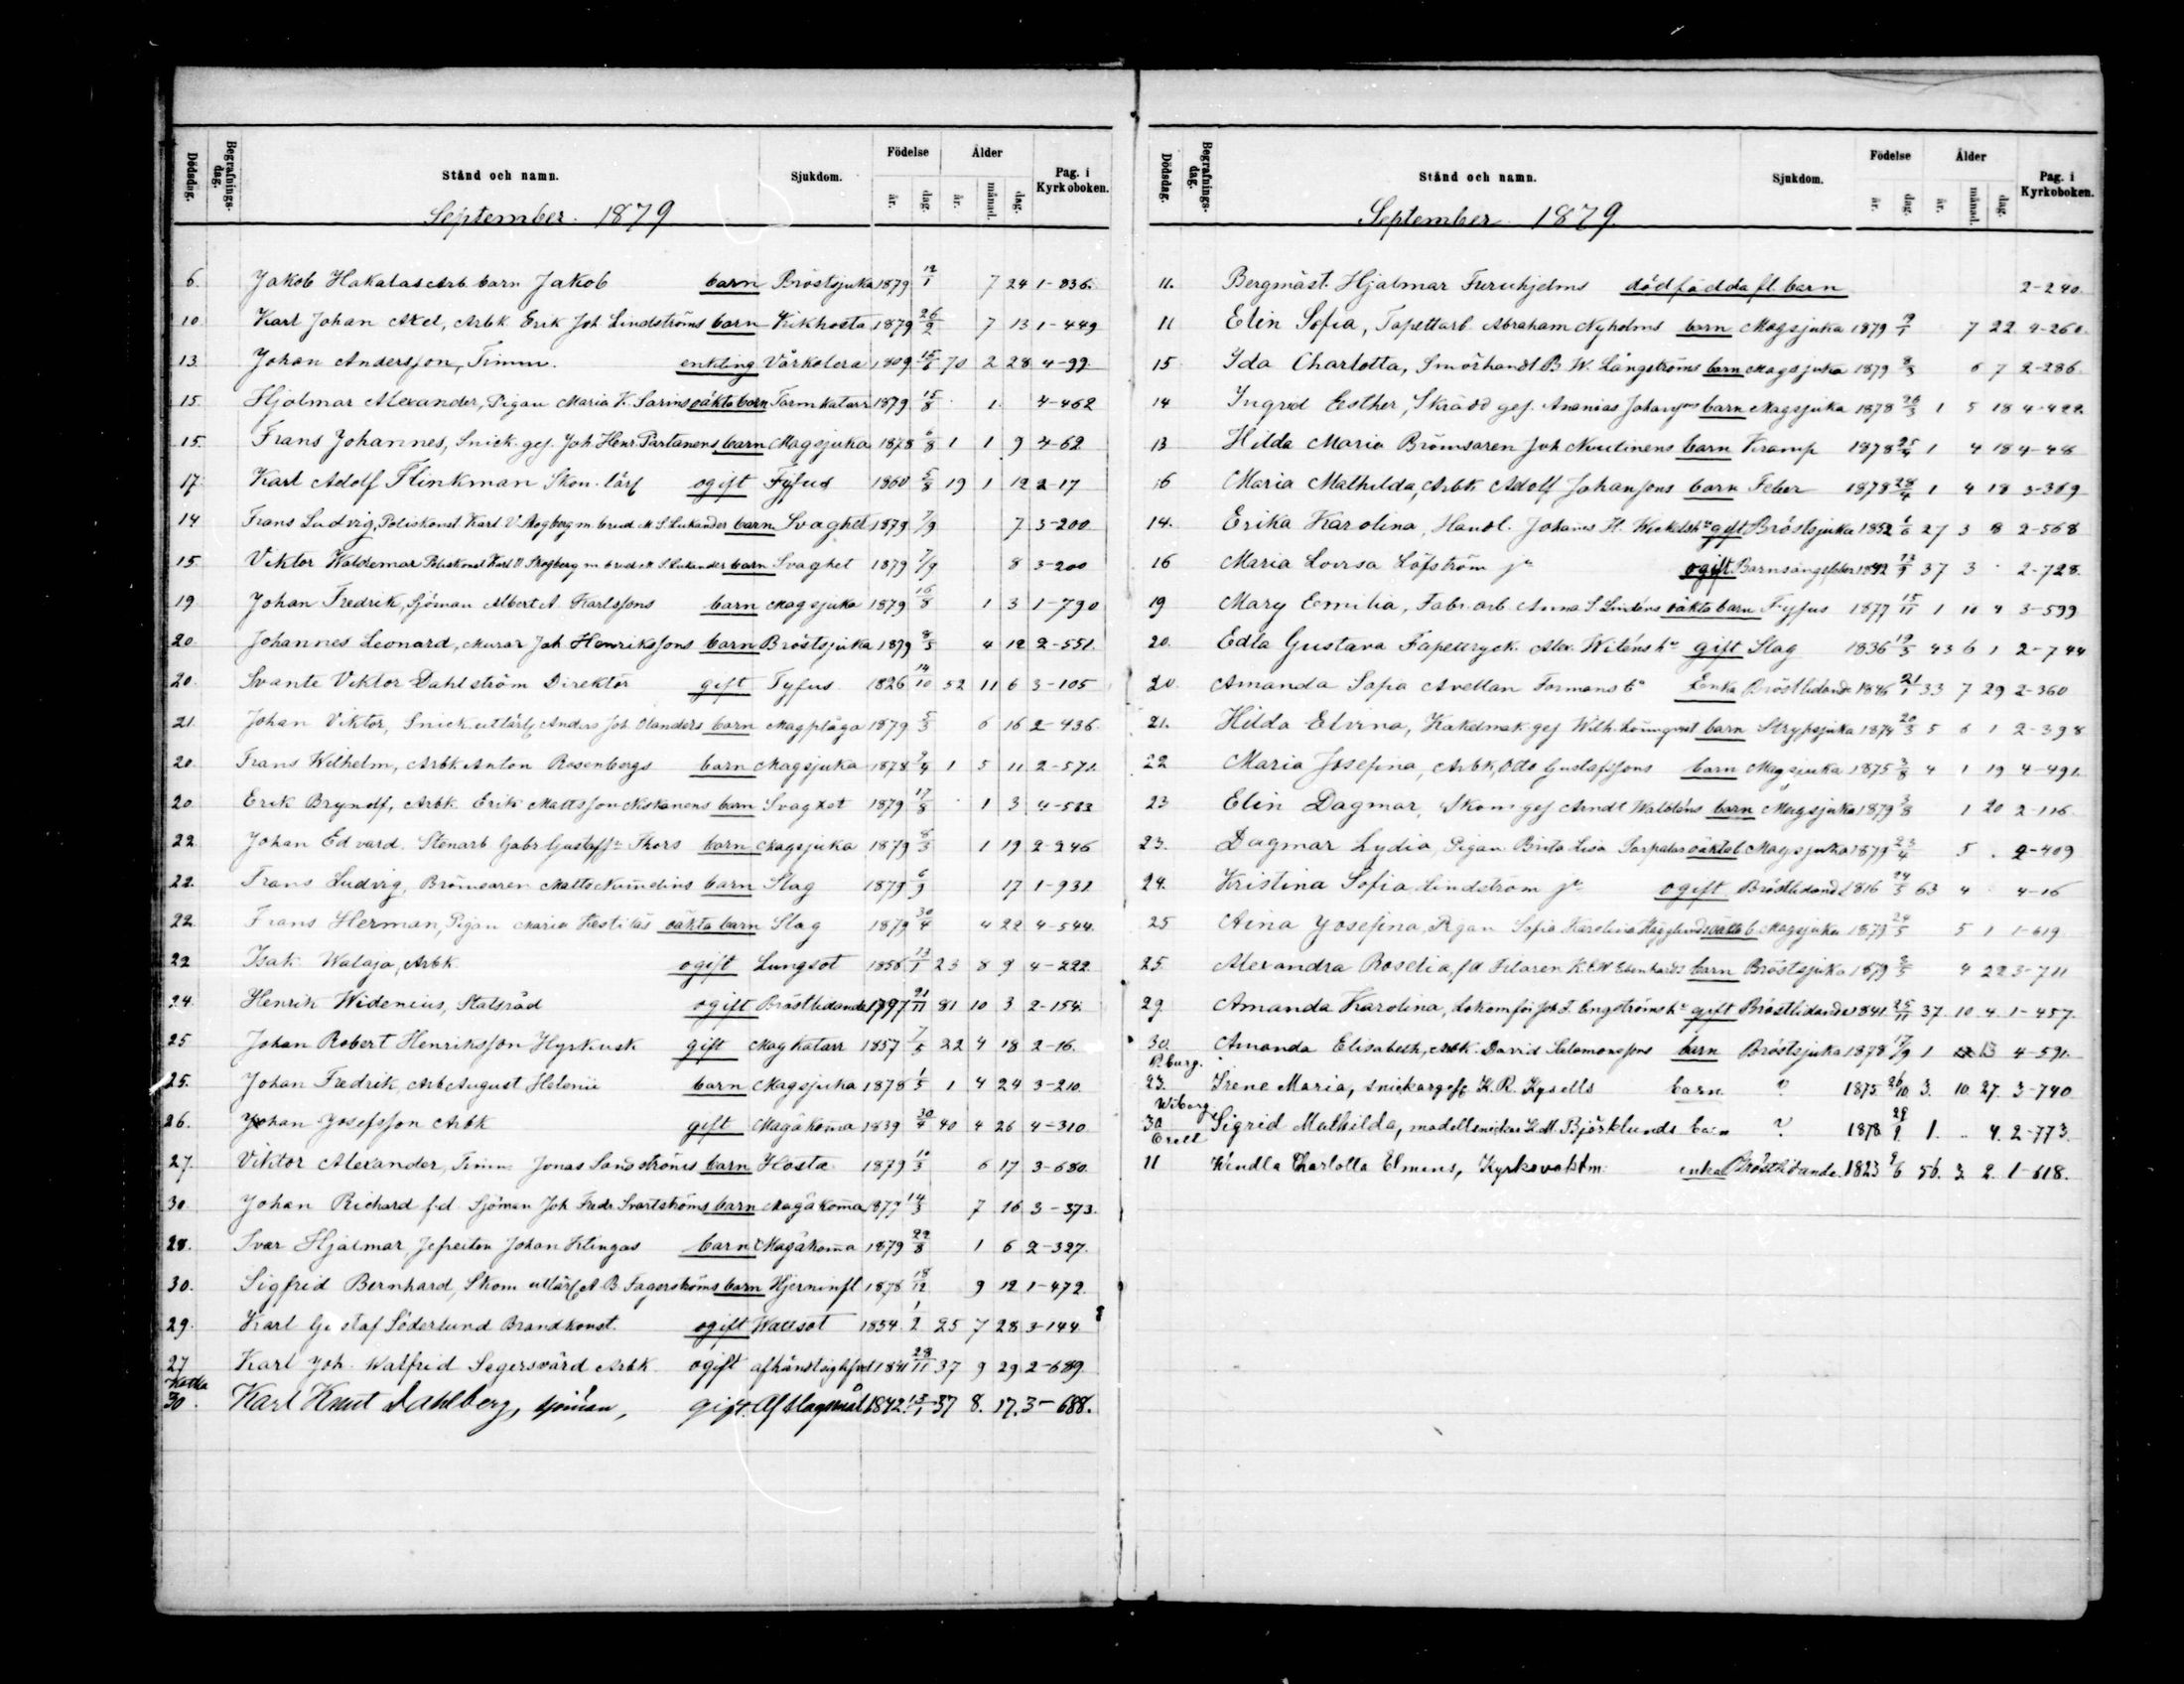 Dödsdag. Begrafnings-dag. Stånd och namn. Sjukdom. Födelse år. dag. Ålder år. månad. dag. Pag. i Kyrkoboken.
September 1879
6. Jakob Hakalas Arb. barn Jakob barn Bröstsjuka 1879 12/1 7 24 1-836.
10 Karl Johan Axel, Arbk Erik Joh Lindströms barn Kikhosta 1879 26/2 7 13 1-449
13 Johan Andersson, Timm. enkling Vårkolera 1809 15/6 70 2 28 4-99
15. Hjalmar Alexander, Pigan Maria K. Sarins oäkta barn Tarmkatarr 1879 15/8 1. 4-462
15. Frans Johannes, Snick. ges. Joh Henr. Partanens barn Magsjuka 1878 6/8 1 1 9 4-62
17 Karl Adolf Flinkman Skom. lärl ogift Tyfus 1860 5/8 19 1 12 2-17
14 Frans Ludvig, Poliskonst Karl V Skogberg m. brud M S Lukander barn Svaghet 1879 7/9 7 3-200
15. Viktor Waldemar Poliskonst Karl V Skogberg m brud M S Lukander barn Svaghet 1879 7/9 8 3-200
19 Johan Fredrik, Sjöman Albert A. Karlssons barn Magsjuka 1879 16/8 1 3 1-790
20 Johannes Leonard, Murar Joh Henrikssons barn Bröstsjuka 1879 8/5 4 12 2-551.
20. Svante Viktor Dahlström Direktör gift Tyfus 1826 14/10 52 11 6 3-105
21. Johan Viktor, Snick. utlärl Anders Joh Olanders barn Magplåga 1879 5/3 6 16 2-436.
20. Frans Wilhelm, Arbk Anton Rosenbergs barn Magsjuka 1878 9/4 1 5 11 2-571.
20 Erik Brynolf, Arbk Erik Mattsson Niskanens barn Svaghet 1879 17/8 1 3 4-583
22 Johan Edvard. Stenarb Gabr Gustafss:n Thors barn Magsjuka 1879 1 19 2-246
22. Frans Ludvig, Brömsaren Matts Nummelins barn Slag 1879 6/9 17 1-931
22 Frans Herman, Pigan Maria Kestiläs oäkta barn Slag 1879 30/4 4 22 4-544.
22 Isak Walaja, Arbk ogift Lungsot 1856 13/1 23 8 9 4-222
24. Henrik Widenius, Statsråd ogift Bröstlidande 1797 21/11 81 10 3 2-154.
25 Johan Robert Henriksson Hyrkusk gift Magkatarr 1857 7/5 22 4 18 2-16.
25. Johan Fredrik, Arb August Helenii barn Magsjuka 1878 1/5 1 4 24 3-210.
26. Johan Josefsson Arbk gift Magåkomma 1839 30/4 40 4 26 4-310
27. Viktor Alexander, Timm Jonas Sandströms barn Hosta 1879 10/3 6 17 3-680.
30. Johan Richard f.d. Sjöman Joh Fredr. Svartströms barn Magåkomma 1877 14/3 7 16 3-373.
28. Ivar Hjalmar, Jefreitor Johan Klingas barn Magåkomma 1879 22/8 1 6 2-327.
30. Sigfrid Bernhard, Skom utlärl A B. Fagerströms barn Hjerninfl 1878 18/12 9 12 1-472.
29. Karl Gustaf Söderlund Brandkonst. ogift Wattsot 1854 1/2 25 7 28 3-144
27 Karl Joh. Walfrid Segersvärd Arbk ogift 1841 28/11 37 9 29 2-689
Kotka
30. Karl Knut Dahlberg, sjöman, gift. Af slagsmål 1842. 13/1 37 8. 17. 3-688.
Dödsdag. Begrafnings-dag. Stånd och namn. Sjukdom. Födelse år. dag. Ålder år. månad. dag. Pag. i Kyrkoboken.
September 1879.
11. Bergmäst. Hjalmar Furuhjelms dödfödda fl. barn 2-240.
11 Elin Sofia, Tapettarb. Abraham Nyholms barn Magsjuka 1879 19/1 7 22 4-260.
15 Ida Charlotta, Smörhandl B. W. Långströms barn Magsjuka 1879 8/3 6 7 2-286.
14 Ingrid Esther, Skrädd ges. Ananias Johanss:ns barn Magsjuka 1878 26/3 1 5 18 4-422.
13 Hilda Maria Brömsaren Joh Nuutinens barn Kramp 1878 25/4 1 4 18 4-48
16 Maria Mathilda, Arbk Adolf Johanssons barn Feber 1878 28/4 1 4 18 3-369
14. Erika Karolina, Handl. Johannes H. h:u gift Bröstsjuka 1852 6/6 27 3 8 2-568
16 Maria Lovisa Löfström j:u ogift Barnsängsfeber 1842 37 3 2-728.
19 Mary Emilia, Fabr. arb Anna S Lindéns oäkta barn Tyfus 1877 15/11 1 10 4 3-599
20. Edla Gustava Tapettryck. Alex. Witéns h:u gift Slag 1836 19/3 43 6 1 2-744
20. Amanda Sofia Avellan Formans e:a Enka Bröstlidande 1846 21/1 33 7 29 2-360
21. Hilda Elvina, Kakelmak. ges Wilh. Lönnqvist barn Strypsjuka 1874 20/3 5 6 1 2-398
22 Maria Josefina, Arbk, Otto Gustafssons barn Magsjuka 1875 3/8 4 1 19 4-491.
23 Elin Dagmar, Skom ges Arndt Wahlténs barn Magsjuka 1879 3/8 1 20 2-116.
23. Dagmar Lydia, Pigan Brita Lisa Sarpalas oäkta b. Magsjuka 1879 23/4 5. 2-409
24. Kristina Sofia Lindström j:u ogift Bröstlidande 1816 24/5 63 4 4-16
25 Aina Josefina, Pigan Sofia Karolina Hägglunds oäkta b. Magsjuka 1879 24/5 5 1 1-619
25. Alexandra Roselia, f d Filaren K. E. W Ebenhards barn Bröstsjuka 1879 5 4 22 3-711
29 Amanda Karolina, Lokomför Joh. F. Engströms h:u gift Bröstlidande 1841 25/11 37 10 4 1-457.
30. Amanda Elisabeth, Arbk David Salomonssons barn Bröstsjuka 1878 17/9 1 13 4-591.
P.burg.
23. Irene Maria, snickarges K. R. Kysells barn ? 1875 26/10 3. 10 27. 3-740
Wiborg
30 Sigrid Mathilda, modellsnickar K. M. Björklunds barn ? 1878 28/9 1. 4. 2-773.
11 Wendla Charlotta Elmens, Kyrkovaktm: enka Bröstlidande. 1823 9/6 56. 3 2. 1-618.